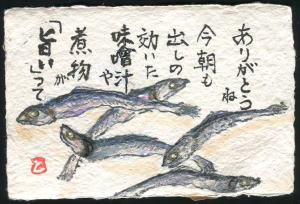 ありがとうね
今朝も
出しの
効いた
味噌汁や
煮物が
「旨い」って